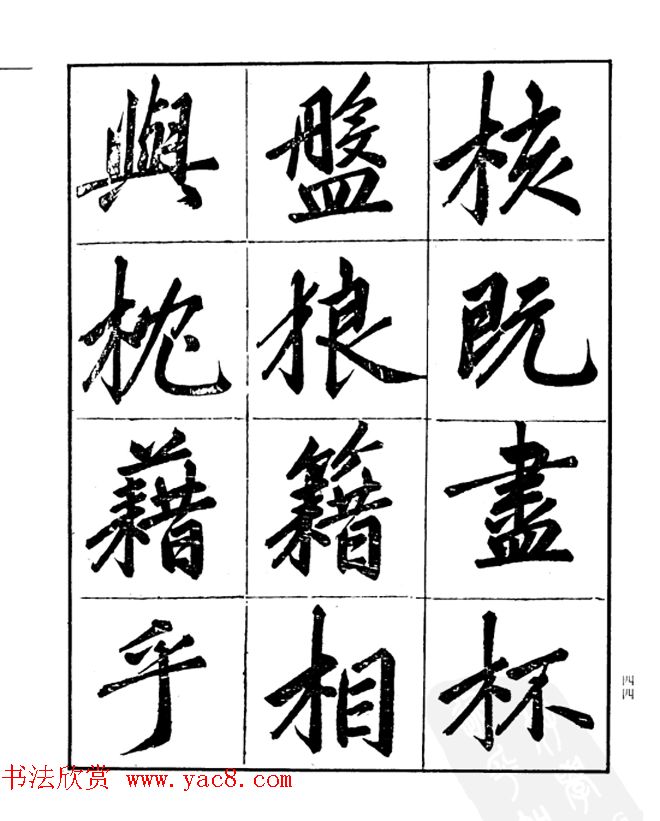 核既盡杯
盤狼籍相
與枕藉乎
四四
书法欣赏 www.yac8.com